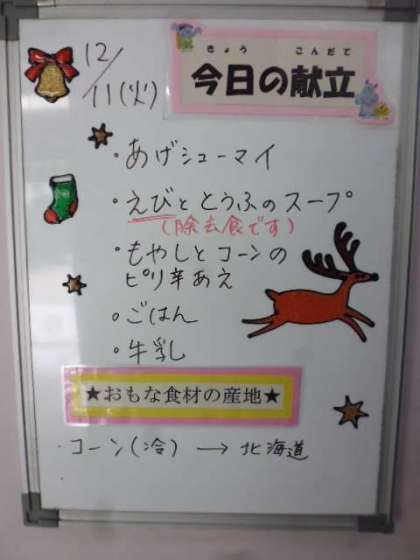 12/11(火)
きょう こんだて
今日の献立
・あげシューマイ
・えびととうふのスープ
(除去食です)
・もやしとコーンの
ピリ辛あえ
・ごはん
・牛乳
★おもな食材の産地★
・コーン(冷)→北海道
・